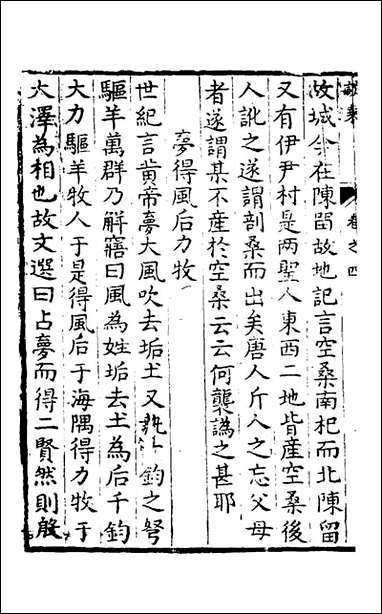 卷之四
故城今在陳留故地記言空桑南杞而北陳留
又有伊尹村是两聖人東西二地皆産空桑後
人訛之遂謂剖桑而出矣唐人斤人之忘父母
者遂謂某不産於空桑云云何襲譌之甚耶
夢得風后力牧
世紀言黄帝夢大風吹去垢土又執千鈞之弩
驅羊萬群乃觧寤曰風為姓垢去土為后千鈞
大力驅羊牧人于是得風后于海隅得力牧于
大澤為相也故文選曰占夢而得二賢然則殷